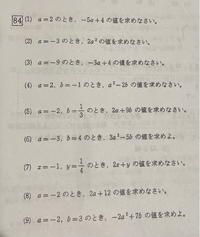 84 (1) a=2 のとき, -5a+4 の値を求めなさい。
(2) a=-3 のとき, 2a² の値を求めなさい。
(3) a=-9 のとき, -3a+4 の値を求めなさい。
(4) a=2, b=-1 のとき, a²-2b の値を求めなさい。
(5) a=-2, b=1/3 のとき, 2a+9b の値を求めなさい。
(6) a=-3, b=4 のとき, 3a²-5b の値を求めよ。
(7) x=-1, y=1/4 のとき, 2x+y の値を求めなさい。
(8) a=-2 のとき, 2a+12 の値を求めなさい。
(9) a=-2, b=3 のとき, -2a²+7b の値を求めよ。